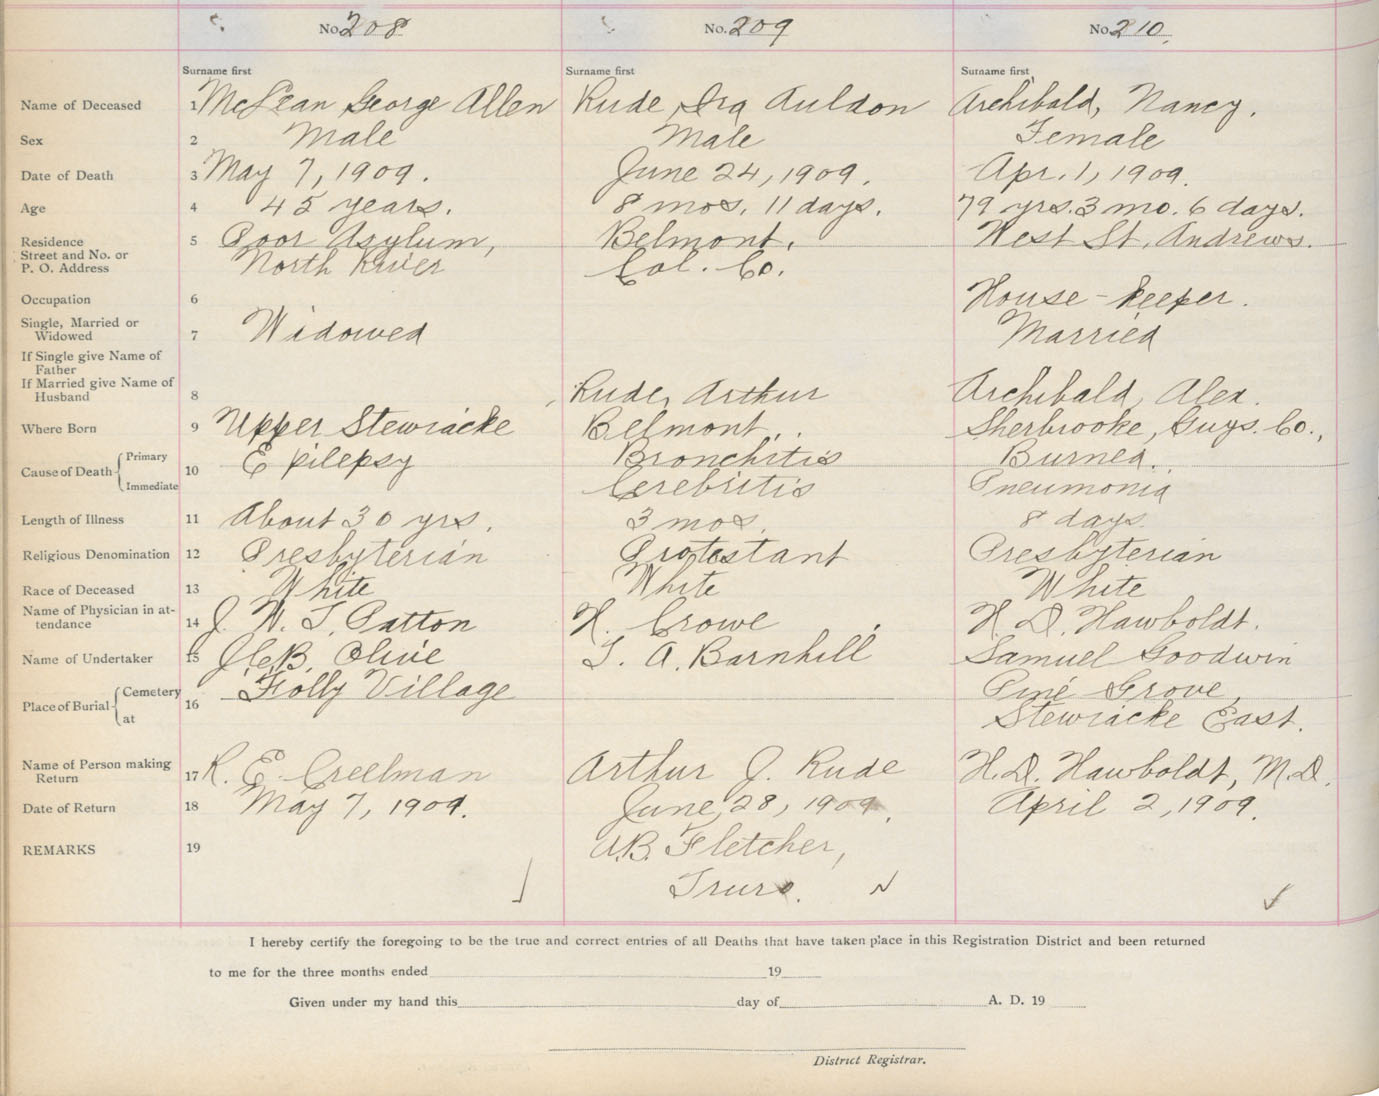 No. 208 No. 209 No. 210.
Surname first Surname first Surname first
Name of Deceased 1 McLean George Allen Rude, Ira Auldon Archibald, Nancy.
Sex 2 Male Male Female
Date of Death 3 May 7, 1909. June 24, 1909. Apr. 1, 1909.
Age 4 45 years. 8 mos. 11 days. 79 yrs. 3 mo. 6 days.
Residence 5 Poor Asylum, Belmont, West St. Andrews.
Street and No. or
P. O. Address North River Col. Co.
Occupation 6 House-keeper.
Single, Married or
Widowed 7 Widowed Married
If Single give Name of
Father
If Married give Name of
Husband 8 Rude, Arthur Archibald, Alex.
Where Born 9 Upper Stewiacke Belmont, Sherbrooke, Guys. Co.,
Cause of Death Primary 10 Epilepsy Bronchitis Burned.
Immediate Cerebritis Pneumonia
Length of Illness 11 About 30 yrs. 3 mos. 8 days
Religious Denomination 12 Presbyterian Protestant Presbyterian
Race of Deceased 13 White White White
Name of Physician in at-
tendance 14 J. W. T. Patton H. Crowe H. D. Hawboldt.
Name of Undertaker 15 J.C.B. Olive T. A. Barnhill Samuel Goodwin
Place of Burial Cemetery 16 Folly Village Pine Grove,
at Stewiacke East.
Name of Person making
Return 17 R. E. Creelman Arthur J. Rude H.D. Hawboldt, M.D.
Date of Return 18 May 7, 1909. June 28, 1909. April 2, 1909.
REMARKS 19 A.B. Fletcher,
Truro.
I hereby certify the foregoing to be the true and correct entries of all Deaths that have taken place in this Registration District and been returned
to me for the three months ended 19
Given under my hand this day of A. D. 19
District Registrar.